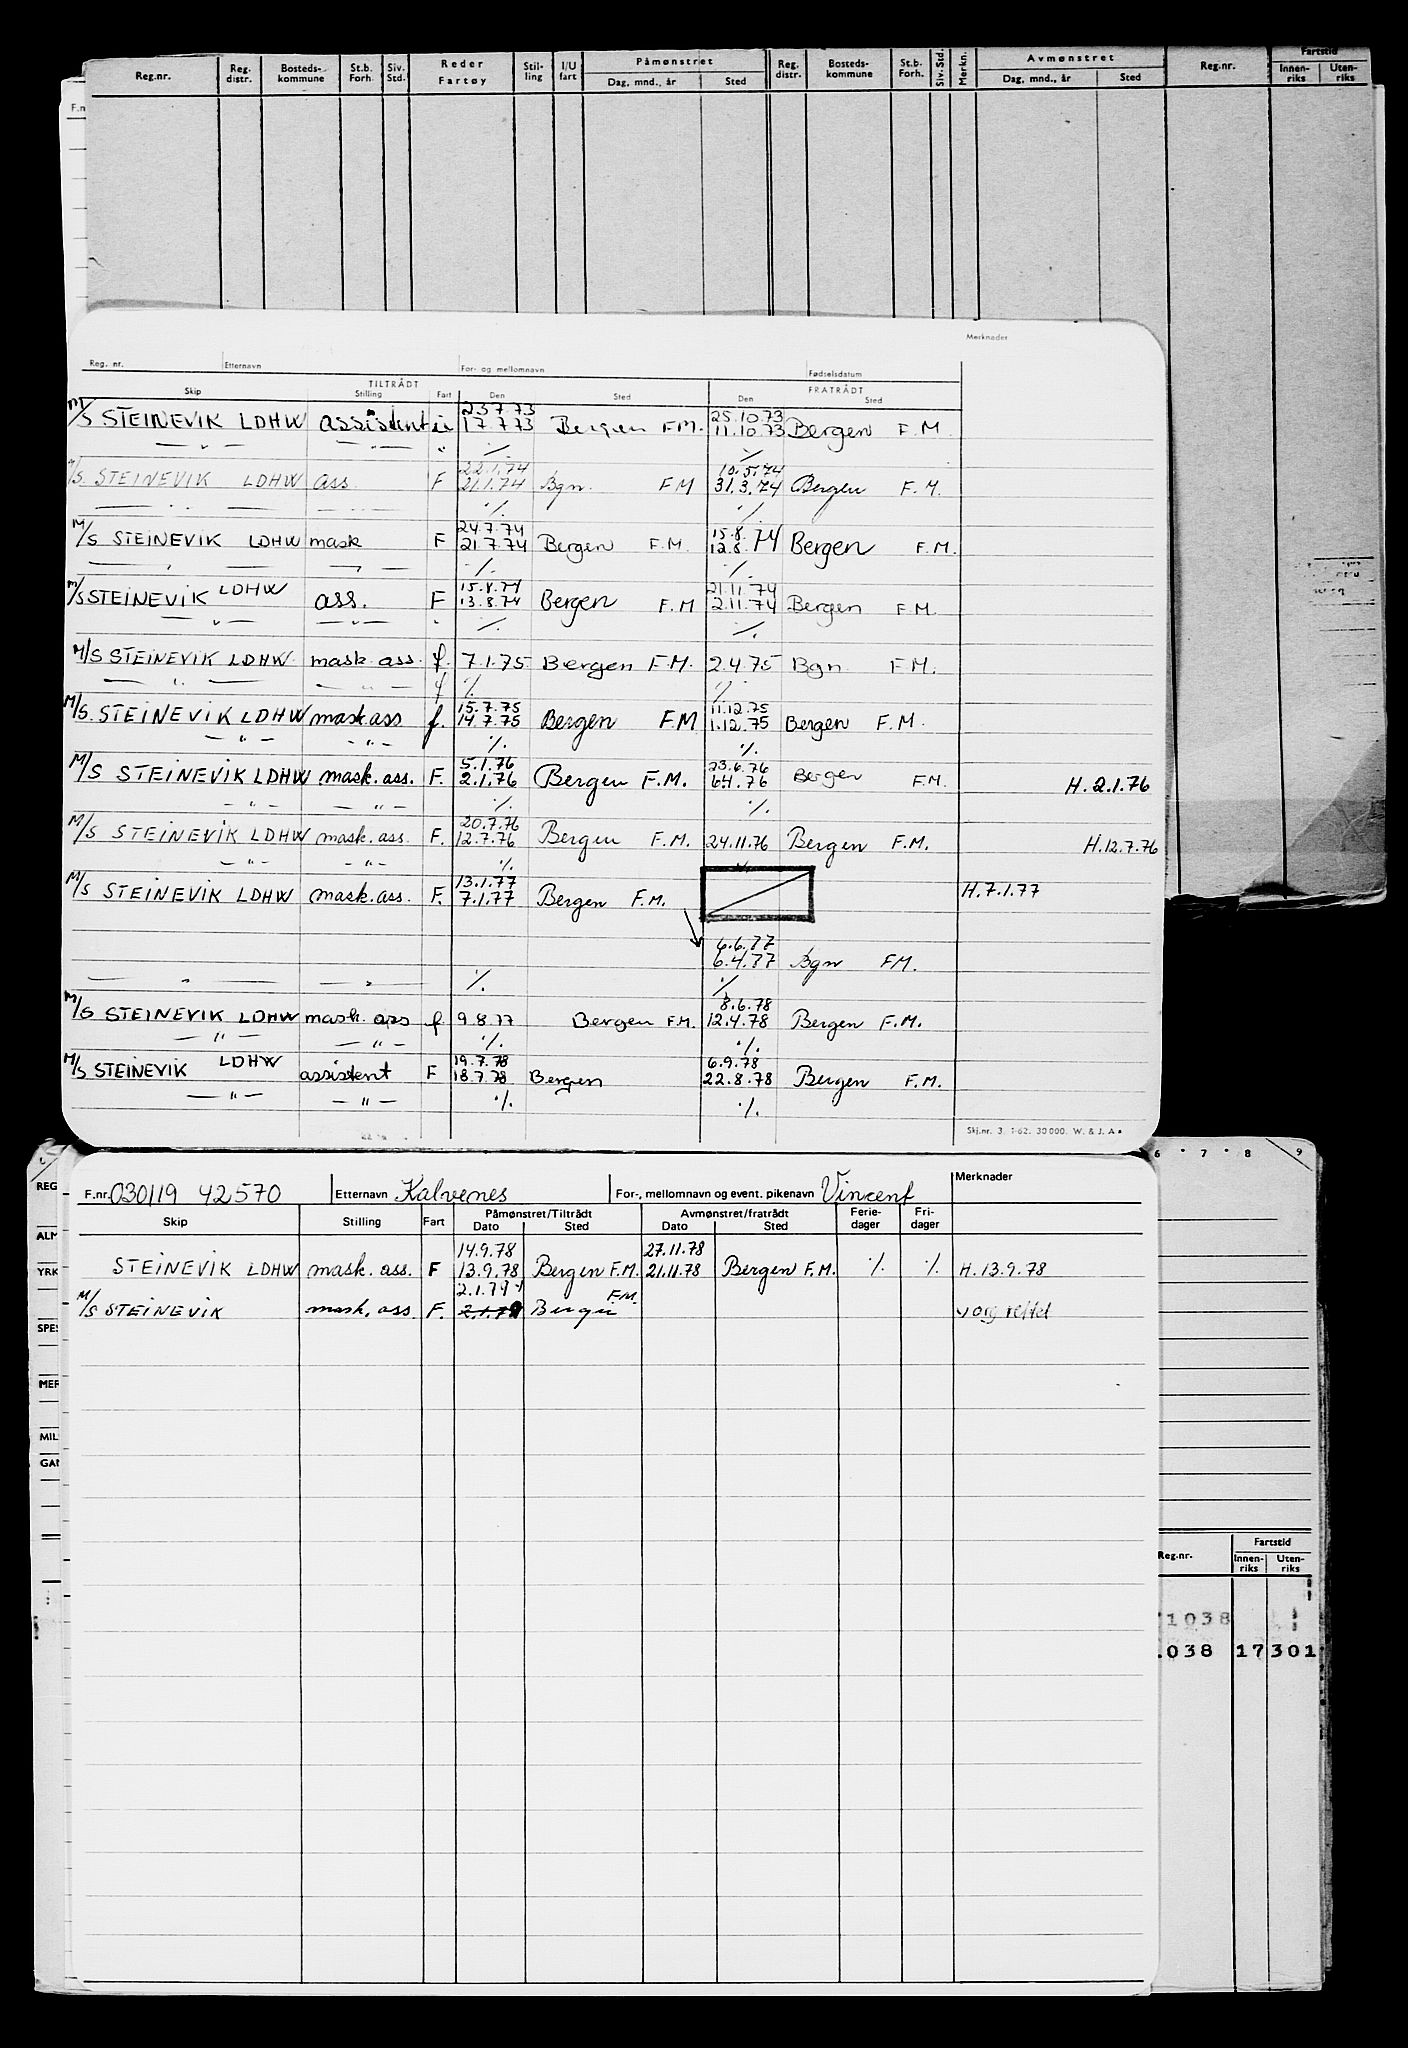 Reg.nr. Reg. distr. Bosteds-kommune St.b. Forh. Siv. Std. Reder Fartøy Stil-ling I/U fart Påmønstret Dag, mnd., år Sted Reg. distr. Bosteds-kommune St.b. Forh. Siv. Std. Merkn. Avmønstret Dag, mnd., år Sted Reg.nr. Fartstid Innen-riks Uten-riks
Merknader
Reg. nr. Etternavn For- og mellomnavn Fødselsdatum
TILTRÅDT FRATRÅDT
Skip Stilling Fart Den Sted Den Sted
23.7.73 25.10.73
M/S STEINEVIK LDHW assistent u 17.7.73 Bergen F.M. 11.10.73 Bergen F.M.
— " — — " — " ./. ./.
22.1.74 10.5.74
M/S. STEINEVIK LDHW ass. F 21.1.74 Bgn. F.M 31.3.74 Bergen F.M.
— " — — " — ./. ./.
24.7.74 15.8.
M/S STEINEVIK LDHW mask F 21.7.74 Bergen F.M. 12.8.74 Bergen F.M.
— " — — " — ./. ./.
15.8.74 21.11.74
M/S STEINEVIK LDHW ass. F 13.8.74 Bergen F.M 2.11.74 Bergen F.M.
— " — — " — " ./. ./.
M/S STEINEVIK LDHW mask. ass. f. 7.1.75 Bergen F.M. 2.4.75 Bgn F.M.
— " — — " — f ./. ./.
15.7.75 11.12.75
M/S. STEINEVIK LDHW mask.ass f. 14.7.75 Bergen F.M 1.12.75 Bergen F.M.
— " — — " — ./. ./.
5.1.76 23.6.76
M/S STEINEVIK LDHW mask. ass. F. 2.1.76 Bergen F.M. 6.4.76 Bergen F.M. H. 2.1.76
— " — — " — ./. ./.
20.7.76
M/S STEINEVIK LDHW mask. ass. F. 12.7.76 Bergen F.M. 24.11.76 Bergen F.M. H.12.7.76
— " — — " — ./. ./.
13.1.77
M/S STEINEVIK LDHW mask. ass. F. 7.1.77 Bergen F.M. H.7.1.77
6.6.77
6.4.77 Bgn F.M.
— " — — " — ./. ./.
8.6.78
M/S STEINEVIK LDHW mask. ass f 9.8.77 Bergen F.M. 12.4.78 Bergen F.M.
— " — — " — ./. ./.
19.7.78 6.9.78
M/S STEINEVIK LDHW assistent F 18.7.78 Bergen 22.8.78 Bergen F.M.
— " — — " — ./. ./.
Skj.nr. 3. 1-62. 30 000. W. & J. A s
6 • 7 • 8 9
F.nr. 030119 42570 Etternavn Kalvenes For-, mellomnavn og event. pikenavn Vincent Merknader
Skip Stilling Fart Påmønstret/Tiltrådt Dato Sted Avmønstret/fratrådt Dato Sted Ferie-dager Fri-dager
14.9.78 27.11.78
STEINEVIK LDHW mask. ass. F 13.9.78 Bergen F.M. 21.11.78 Bergen F.M. ./. ./. H.13.9.78
2.1.79 v F.M.
M/S STEINEVIK mask. ass. F. Bergen v og rettet
REG
ALM
YRK
SPES
MER
MIL
GAN
Reg.nr. Fartstid Innen-riks Uten-riks
1038
.038 17 301